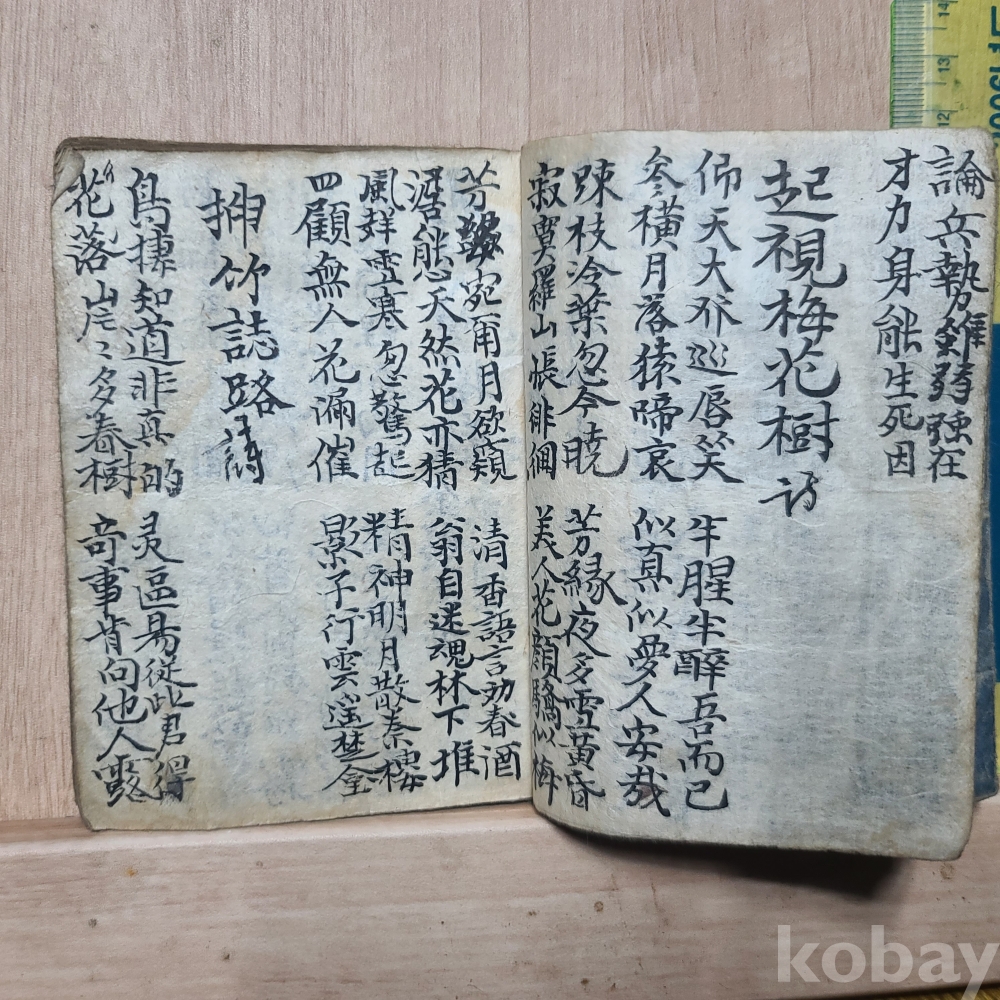 論兵勢雖弱強在
才力身能生死因
起視梅花樹 詩
仰天大 巡唇笑 半腥半醉吾而已
參橫月落猿啼哀 似真似夢人安哉
疎枝冷葉忽今曉 芳緣夜多雪黃昏
寂寞羅山悵徘徊 美人花顏 似梅
芳 宛 月欲 清香語言幼春酒
能 天然花亦猜 翁自迷魂林下堆
風 雪寒忽驚起 精神明月散秦樓
四顧無人花漏催 影子行雲 楚
挿竹誌路 詩
鳥棲知道非真的 灵區易從此君得
花落山 多春樹 奇事肯向他人露
kobay